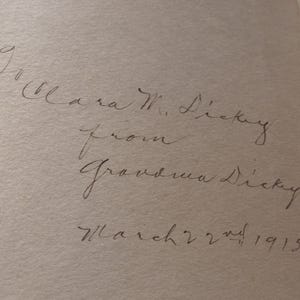 To
Clara M. Dickey
from
Grandma Dickey
March 22nd, 191